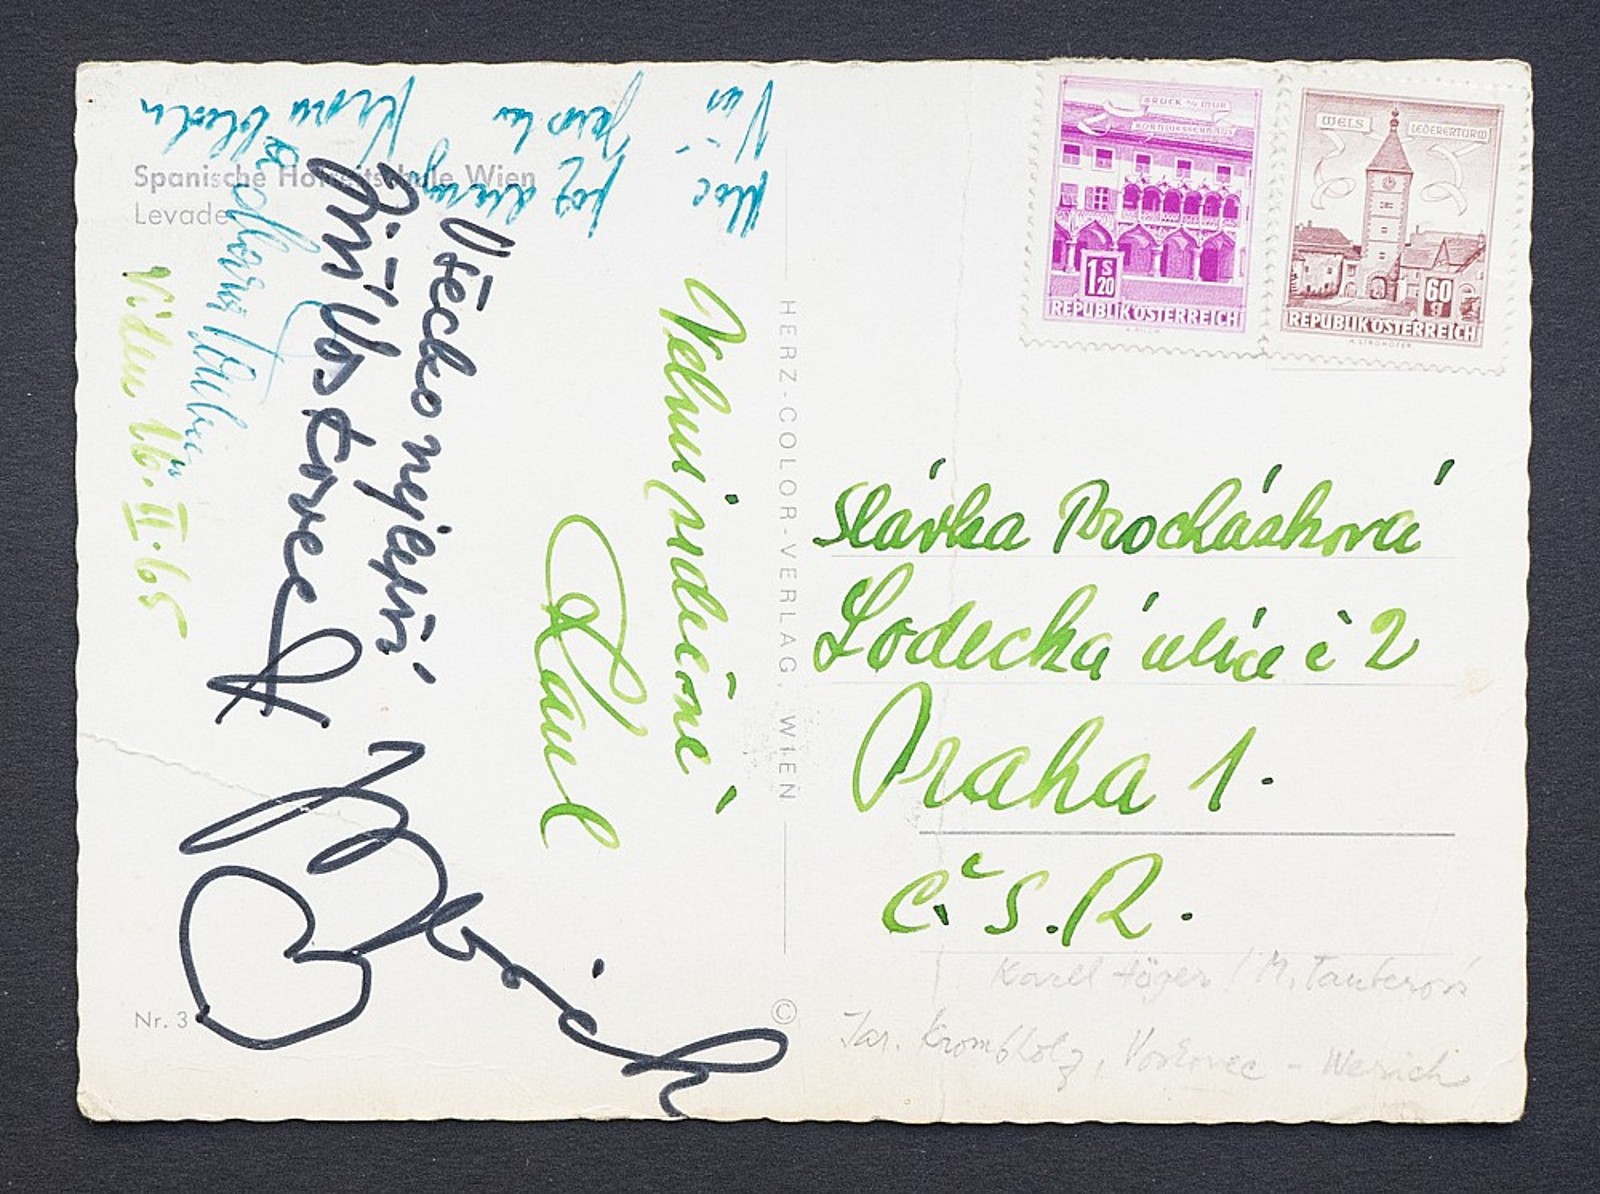 Spanische Hofreitschule Wien
Levade
Vídeň 16. II. 65
Všecko nejlepší
Jiří Voskovec
Werich
Velmi srdečně
Karel
HERZ-COLOR-VERLAG, WIEN
©
Nr. 3
BRUCK a/d MUR
KORNMESSERHAUS
1 S 20
REPUBLIK ÖSTERREICH
WELS
LEDERERTURM
60 g
REPUBLIK ÖSTERREICH
Slávka Procházková
Lodecká ulice č 2
Praha 1.
Č.S.R.
Karel Höger / M. Tauberová
Jar. Krombholz, Voskovec - Werich